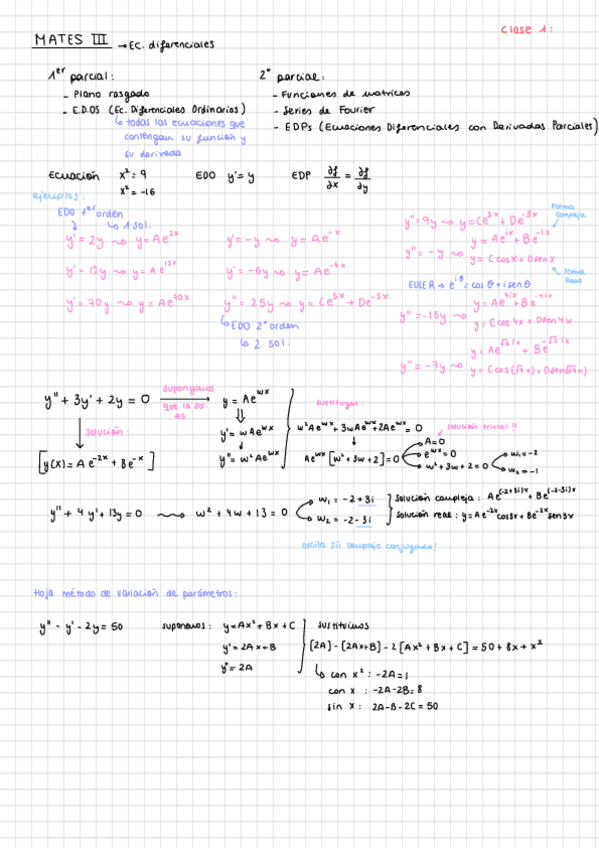 Clase 1:
MATES III → EC. diferenciales
1er parcial:
- Plano rasgado
- E.D.OS (Ec. Diferenciales Ordinarios)
↳ todas las ecuaciones que
contengan su función y
su derivada
2º parcial:
- Funciones de matrices
- Series de Fourier
- EDPs (Ecuaciones Diferenciales con Derivadas Parciales)
Ecuación x² = 9 EDO y' = y EDP ∂f/∂x = ∂f/∂y
x² = -16
ejemplos:
EDO 1er orden
↳ 1 sol.
y' = 2y ⇝ y = Ae^{2x}
y' = 12y ⇝ y = Ae^{12x}
y' = 70y ⇝ y = Ae^{70x}
y' = -y ⇝ y = Ae^{-x}
y' = -6y ⇝ y = Ae^{-6x}
y'' = 25y ⇝ y = Ce^{5x} + De^{-5x}
↳ EDO 2º orden
↳ 2 sol.
Forma compleja
y'' = 9y ⇝ y = Ce^{3x} + De^{-3x}
y = Ae^{ix} + Be^{-ix}
y'' = -y ⇝ y = C cos x + D sen x
Forma
EULER → e^{iθ} = cos θ + i sen θ
y = Ae^{4ix} + Be^{-4ix}
y'' = -16y ⇝ y = C cos 4x + D sen 4x
y = Ae^{√7 ix} + Be^{-√7 ix}
y'' = -7y ⇝ y = C cos(√7x) + D sen(√7x)
y'' + 3y' + 2y = 0 supongamos que la sol. es y = Ae^{wx}
y' = wAe^{wx}
y'' = w²Ae^{wx}
solución:
[y(x) = Ae^{-2x} + Be^{-x}]
sustituyes:
w²Ae^{wx} + 3wAe^{wx} + 2Ae^{wx} = 0 solución trivial !!
Ae^{wx}[w² + 3w + 2] = 0
A = 0
e^{wx} = 0
w² + 3w + 2 = 0
w₁ = -2
w₂ = -1
y'' + 4y' + 13y = 0 ⇝ w² + 4w + 13 = 0
w₁ = -2 + 3i
w₂ = -2 - 3i
solución compleja: Ae^{(-2+3i)x} + Be^{(-2-3i)x}
solución real: y = Ae^{-2x}cos3x + Be^{-2x}sen3x
oscila sii complejo conjugados!
Hoja método de variación de parámetros:
y'' - y' - 2y = 50 suponemos: y = Ax² + Bx + C
y' = 2Ax + B
y'' = 2A
sustituimos
[2A] - [2Ax+B] - 2[Ax² + Bx + C] = 50 + 8x + x²
↳ con x²: -2A = 1
con x : -2A - 2B = 8
sin x: 2A - B - 2C = 50